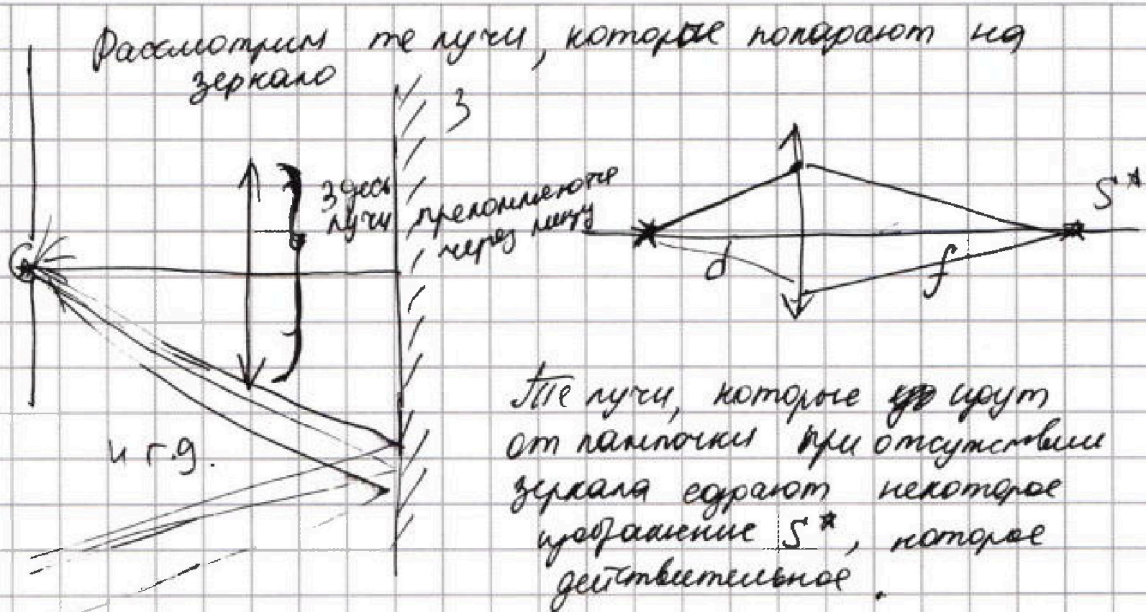 Рассмотрим те лучи, которые попадают на
зеркало
З
здесь
лучи преломляются
через линзу
S*
d
f
и т.д.
Те лучи, которые идут
от лампочки при отсутствии
зеркала создают некоторое
изображение S*, которое
действительное.